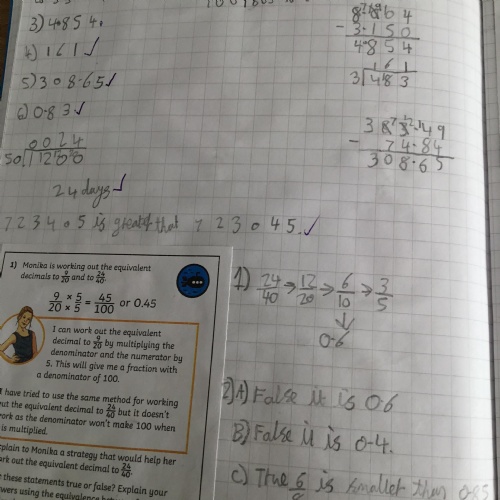 3) 4.854.
4) 161 ✓
5) 308.65 ✓
6) 0.83 ✓
0024
50 1200
24 days ✓
7234.5 is greater that 723.45. ✓
- 3.150
4.854
161
3 483
- 74.84
308.65
1) Monika is working out the equivalent
decimals to 9/20 and to 24/40.
9/20 × 5/× 5 = 45/100 or 0.45
I can work out the equivalent
decimal to 9/20 by multiplying the
denominator and the numerator by
5. This will give me a fraction with
a denominator of 100.
I have tried to use the same method for working
out the equivalent decimal to 24/40 but it doesn't
work as the denominator won't make 100 when
is multiplied.
Explain to Monika a strategy that would help her
work out the equivalent decimal to 24/40.
these statements true or false? Explain your
1) 24/40 → 12/20 → 6/10 → 3/5
↓
0.6
2) A) False it is 0.6
B) False it is 0.4.
C) True 6 is smaller than 0.85